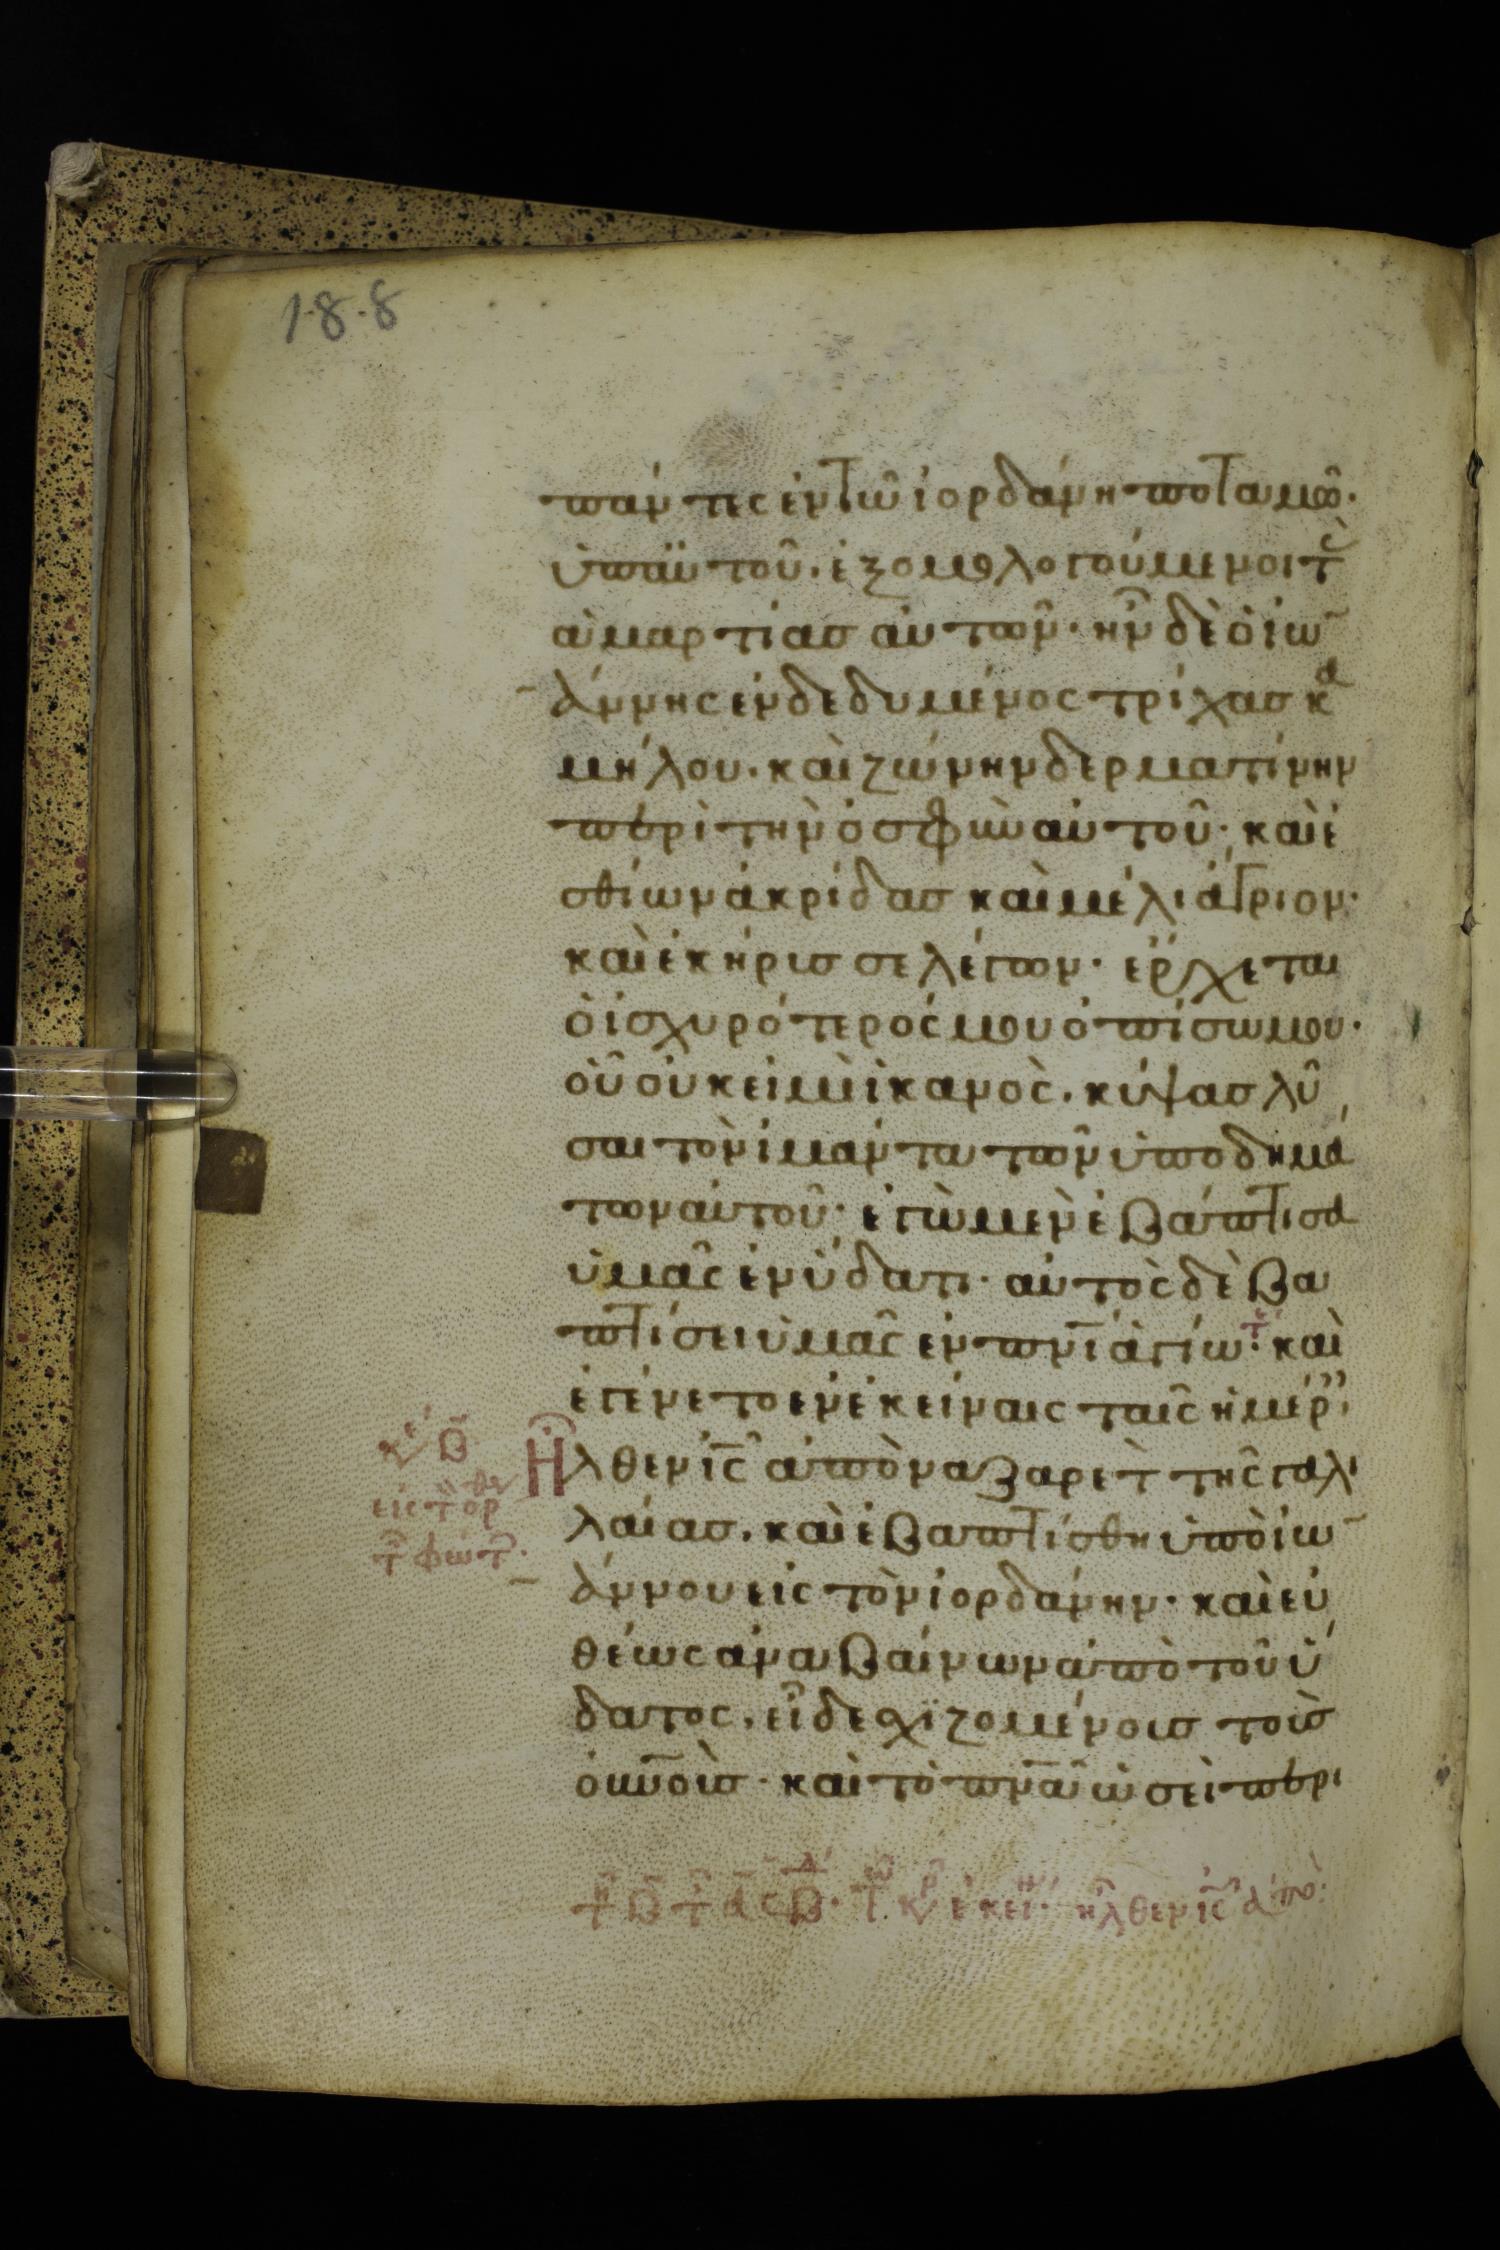 1-8-8
πάντες ἐν τῶ ἰορδάνη ποταμῶ·
ὑπ αὐτοῦ. ἐξομολογούμενοι τ(ὰς)
ἁμαρτίας αὐτῶν· ἦν δὲ ὁ ἰω
άννης ἐνδεδυμένος τρίχας κα
μήλου. καὶ ζώνην δερματίνην
περὶ τὴν ὀσφὺν αὐτοῦ· καὶ ἐ
σθίων ἀκρίδας καὶ μέλι ἄγριον·
καὶ ἐκήρισσε λέγων· ἔρχεται
ὁ ἰσχυρότερός μου ὀπίσω μου·
οὗ οὐκ εἰμὶ ἱκανὸς. κύψας λῦ
σαι τὸν ἱμάντα τῶν ὑποδημά
των αὐτοῦ· ἐγὼ μὲν ἐβάπτισα
ὑμᾶς ἐν ὕδατι· αὐτὸς δὲ βα
πτίσει ὑμᾶς ἐν πνι ἁγίω· καὶ
ἐγένετο ἐν ἐκείναις ταῖς ἡμέρ
κυ β Ἦλθεν ις ἀπὸ ναζαρετ τῆς γαλι
εἰς τ ορθρ λαίας. καὶ ἐβαπτίσθη ὑπὸ ἰω
τ φωτ· άννου εἰς τὸν ἰορδάνην· καὶ εὐ
θέως ἀναβαίνων ἀπὸ τοῦ ὕ
δατος, εἶδε σχιζομένους τοὺς
οὐνοὺς· καὶ τὸ πνα ὡσεὶ περι
ἦλθεν ις ἀπὸ: